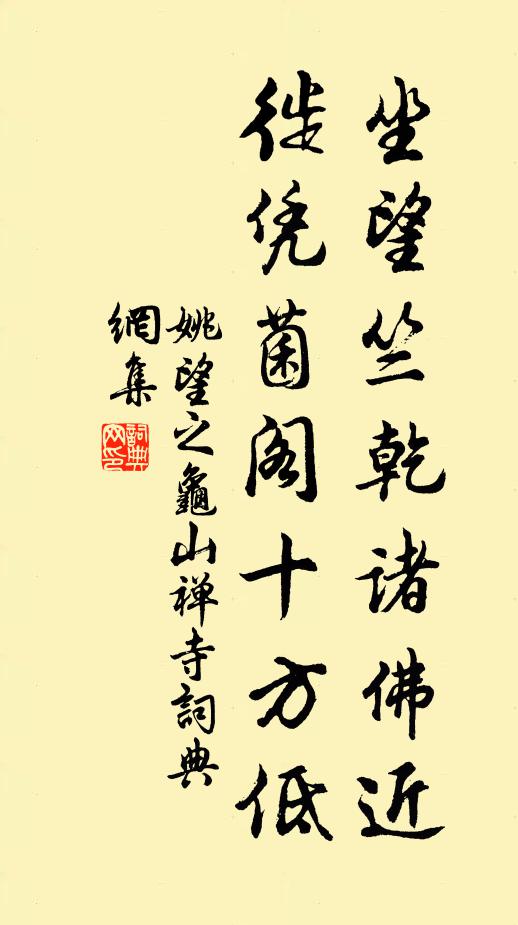 坐望竺乾诸佛近
徙凭菌阁十方低
姚望之龜山禅寺詞典
網集
詞典网印